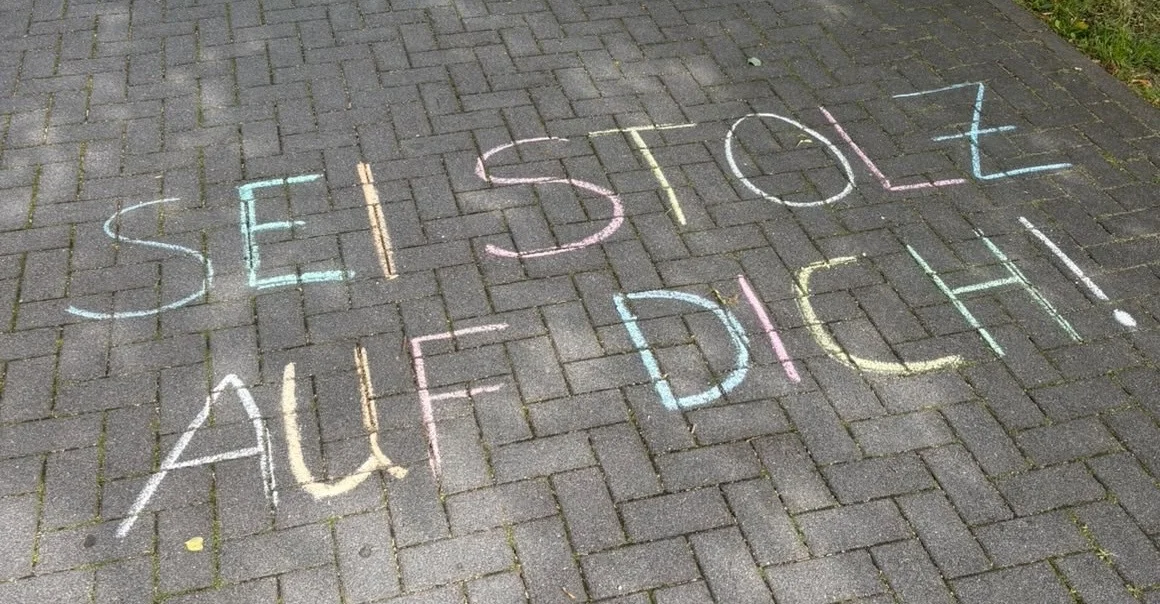 SEI STOLZ
AUF DICH!